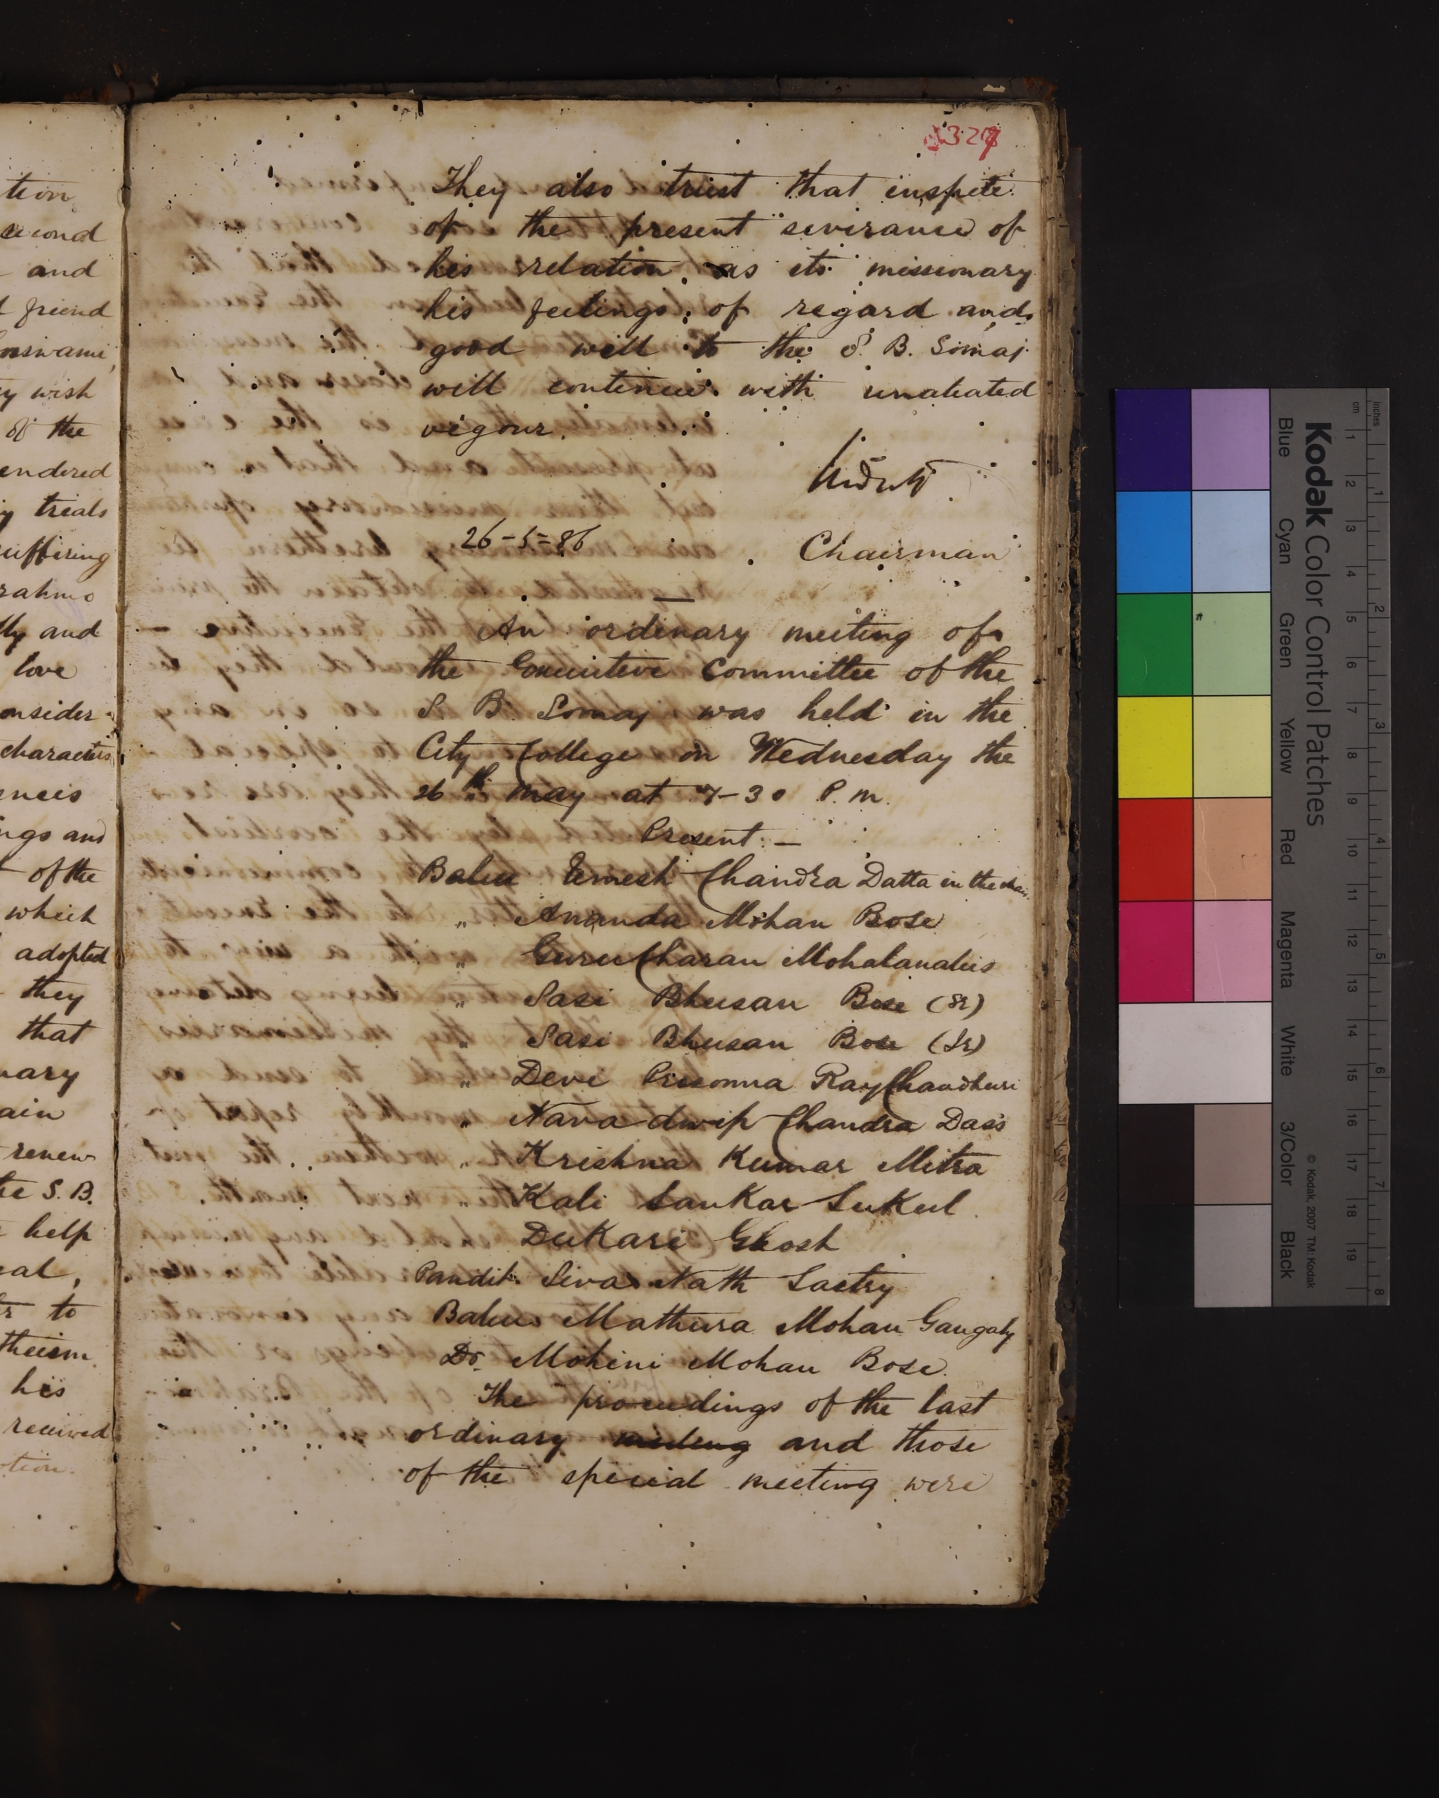 tion
second
and
friend
wish
of the
rendered
trials
suffering
Brahmo
and
love
consider
characters
ings and
of the
which
adopted
they
that
renew
the S.B.
help
to
theism
his
received
327
They also trust that inspite
of the present severance of
his relation as its missionary
his feelings of regard and
good will to the S. B. Somaj
will continue with unabated
vigour.
26-5-86
Chairman
An ordinary meeting of
the Executive Committee of the
S. B. Somaj was held in the
City College on Wednesday the
26th May at 7-30 P.m.
Present:—
Babu Umesh Chandra Datta in the chair
„ Ananda Mohan Bose
„ Guru Charan Mohalanabis
„ Sasi Bhusan Bose (Sr)
„ Sasi Bhusan Bose (Jr)
„ Devi Prosonna Ray Chaudhuri
„ Nava dwip Chandra Dass
„ Krishna Kumar Mitra
„ Kali Sankar Sukul
DuKari Ghosh
Pandit Siva Nath Sastry
Babu Mathura Mohan Gangaly
Dr. Mohini Mohan Bose
The proceedings of the last
ordinary meeting and those
of the special meeting were
Kodak Color Control Patches
Blue Cyan Green Yellow Red Magenta White 3/Color Black
© Kodak, 2007 TM: Kodak
inches 1 2 3 4 5 6 7 8
cm 1 2 3 4 5 6 7 8 9 10 11 12 13 14 15 16 17 18 19